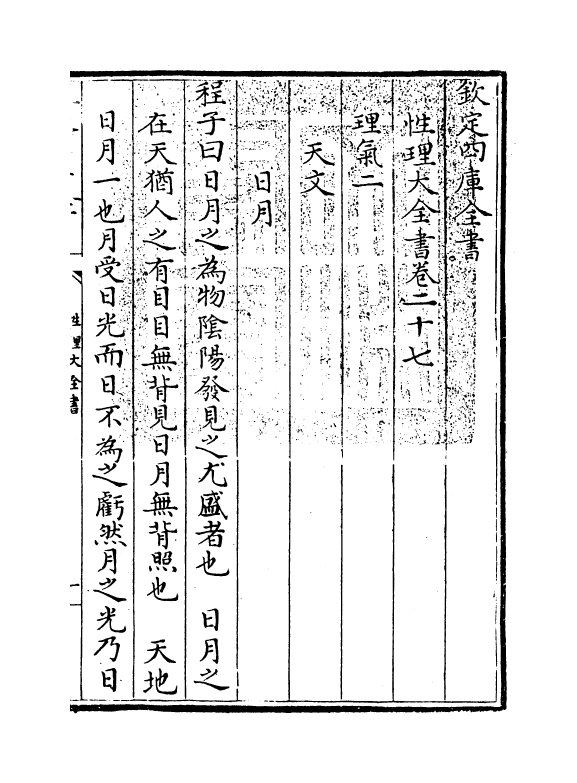 欽定四庫全書
性理大全書卷二十七
理氣二
天文
日月
程子曰日月之為物陰陽發見之尤盛者也　日月之
在天猶人之有目目無背見日月無背照也　天地
日月一也月受日光而日不為之虧然月之光乃日
性理大全書